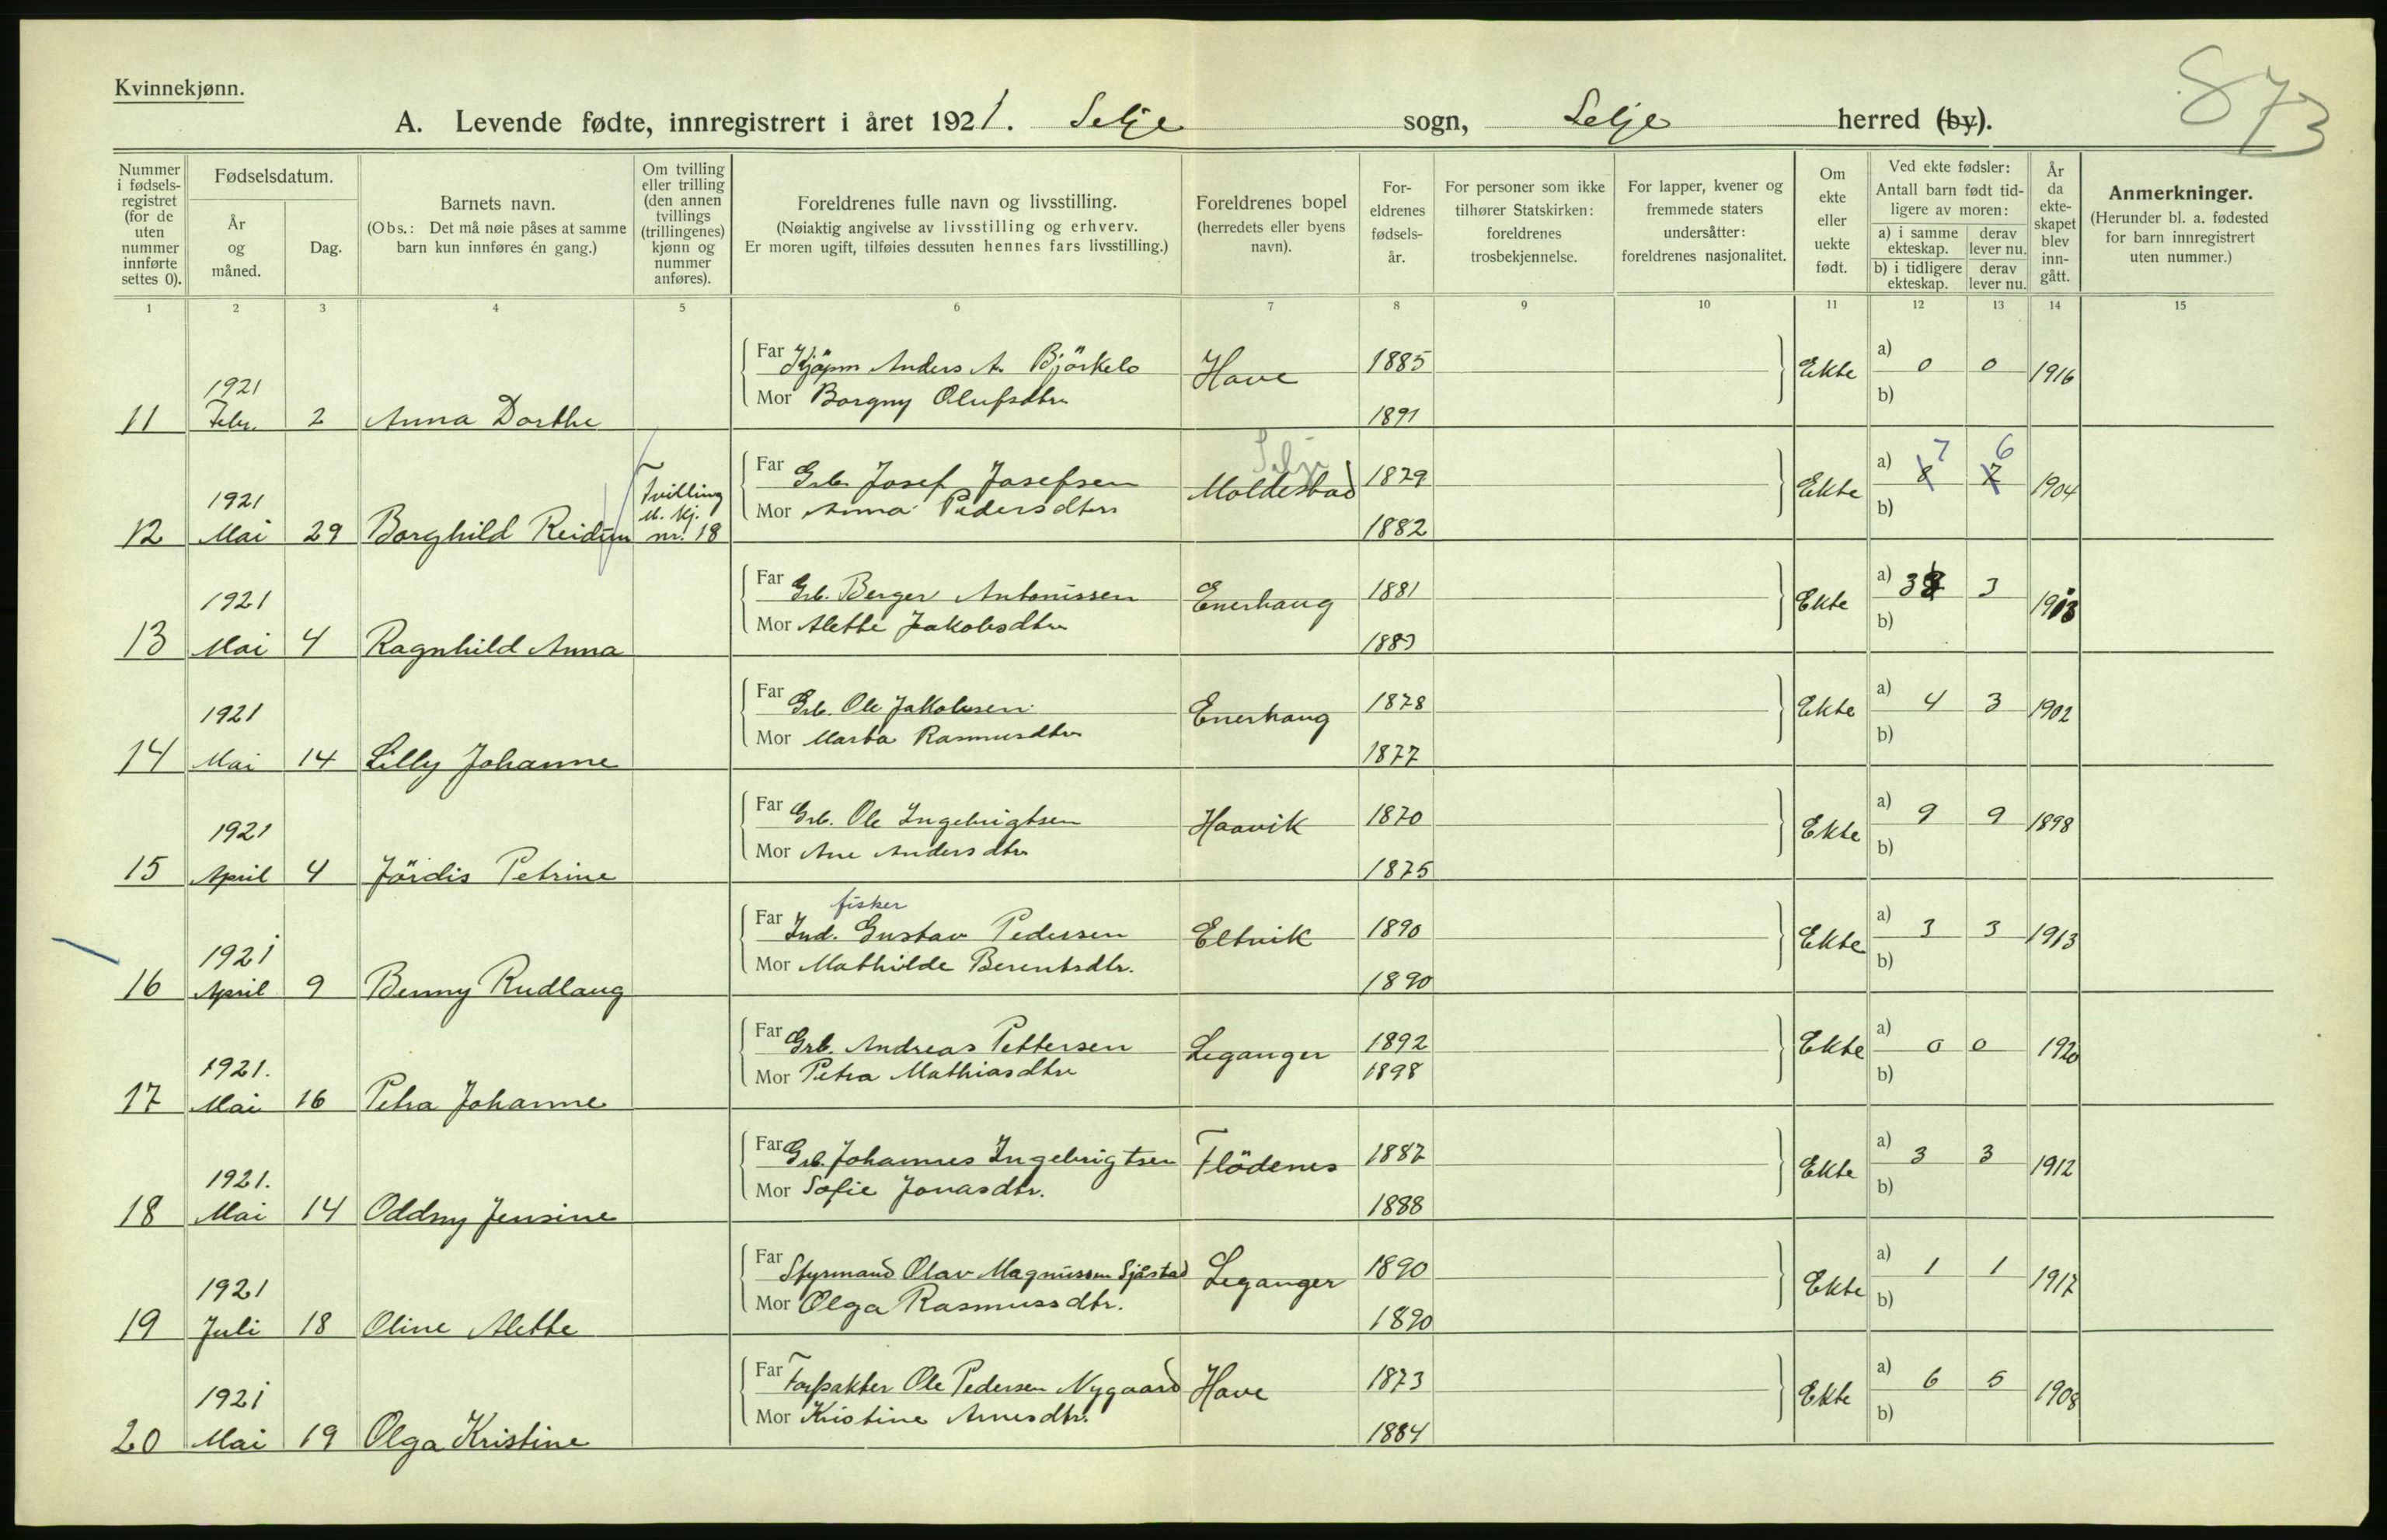 Kvinnekjønn.
873
A. Levende fødte, innregistrert i året 1921. Selje sogn, Selje herred (by).
Nummer i fødsels- registret (for de uten nummer innførte settes 0).
Fødselsdatum.
År og måned.
Dag.
Barnets navn.
(Obs.: Det må nøie påses at samme barn kun innføres én gang.)
Om tvilling eller trilling (den annen tvillings (trillingenes) kjønn og nummer anføres).
Foreldrenes fulle navn og livsstilling.
(Nøiaktig angivelse av livsstilling og erhverv.
Er moren ugift, tilføies dessuten hennes fars livsstilling.)
Foreldrenes bopel
(herredets eller byens navn).
For- eldrenes fødsels- år.
For personer som ikke tilhører Statskirken: foreldrenes trosbekjennelse.
For lapper, kvener og fremmede staters undersåtter: foreldrenes nasjonalitet.
Om ekte eller uekte født.
Ved ekte fødsler:
Antall barn født tid- ligere av moren:
a) i samme ekteskap.
derav lever nu.
b) i tidligere ekteskap.
derav lever nu.
År da ekte- skapet blev inn- gått.
Anmerkninger.
(Herunder bl. a. fødested for barn innregistrert uten nummer.)
1 2 3 4 5 6 7 8 9 10 11 12 13 14 15
Far Kjöpm Anders A. Björkelo Hove 1885 Ekte a) 0 0 1916
1921
Mor Borgny Olufsdtr b)
11 Febr. 2 Anna Dorthe 1891
Selje 7 6
Far Grb. Josef Josefsen Moldestad 1879 Ekte a) 8 7 1904
1921 Tvilling
Mor Anna Pedersdtr b)
M. kj.
12 Mai 29 Borghild Reidun nr. 18 1882
Far Grb. Berger Antonissen Enerhaug 1881 Ekte a) 3 3
1921
Mor Alette Jakobsdtr b)
13 Mai 4 Ragnhild Anna 1883
Far Grb. Ole Jakobsen Enerhaug 1878 Ekte a) 4 3 1902
1921
Mor Marta Rasmusdtr b)
14 Mai 14 Lilly Johanne 1877
Far Grb. Ole Ingebrigtsen Haavik 1870 Ekte a) 9 9 1898
1921
Mor Ane Andersdtr b)
15 April 4 Jördis Petrine 1875
fisker
Far Ind. Gustav Pedersen Eltvik 1890 Ekte a) 3 3 1913
1921
Mor Mathilde Berentsdtr. b)
16 April 9 Benny Rudlaug 1890
Far Grb. Andreas Pettersen Leganger 1892 Ekte a) 0 0 1920
1921.
Mor Petra Mathiasdtr 1898 b)
17 Mai 16 Petra Johanne
Far Grb. Johannes Ingebrigtsen Flödenes 1887 Ekte a) 3 3 1912
1921.
Mor Sofie Jonasdtr. b)
18 Mai 14 Oddny Jensine 1888
Far Styrmand Olav Magnussen Sjåstad Leganger 1890 Ekte a) 1 1 1917
1921
Mor Olga Rasmussdtr. b)
19 Juli 18 Oline Alette 1890
Far Forpakter Ole Pedersen Nygaard Hove 1873 Ekte a) 6 5 1908
1921
Mor Kristine Arnesdtr. b)
20 Mai 19 Olga Kristine 1884